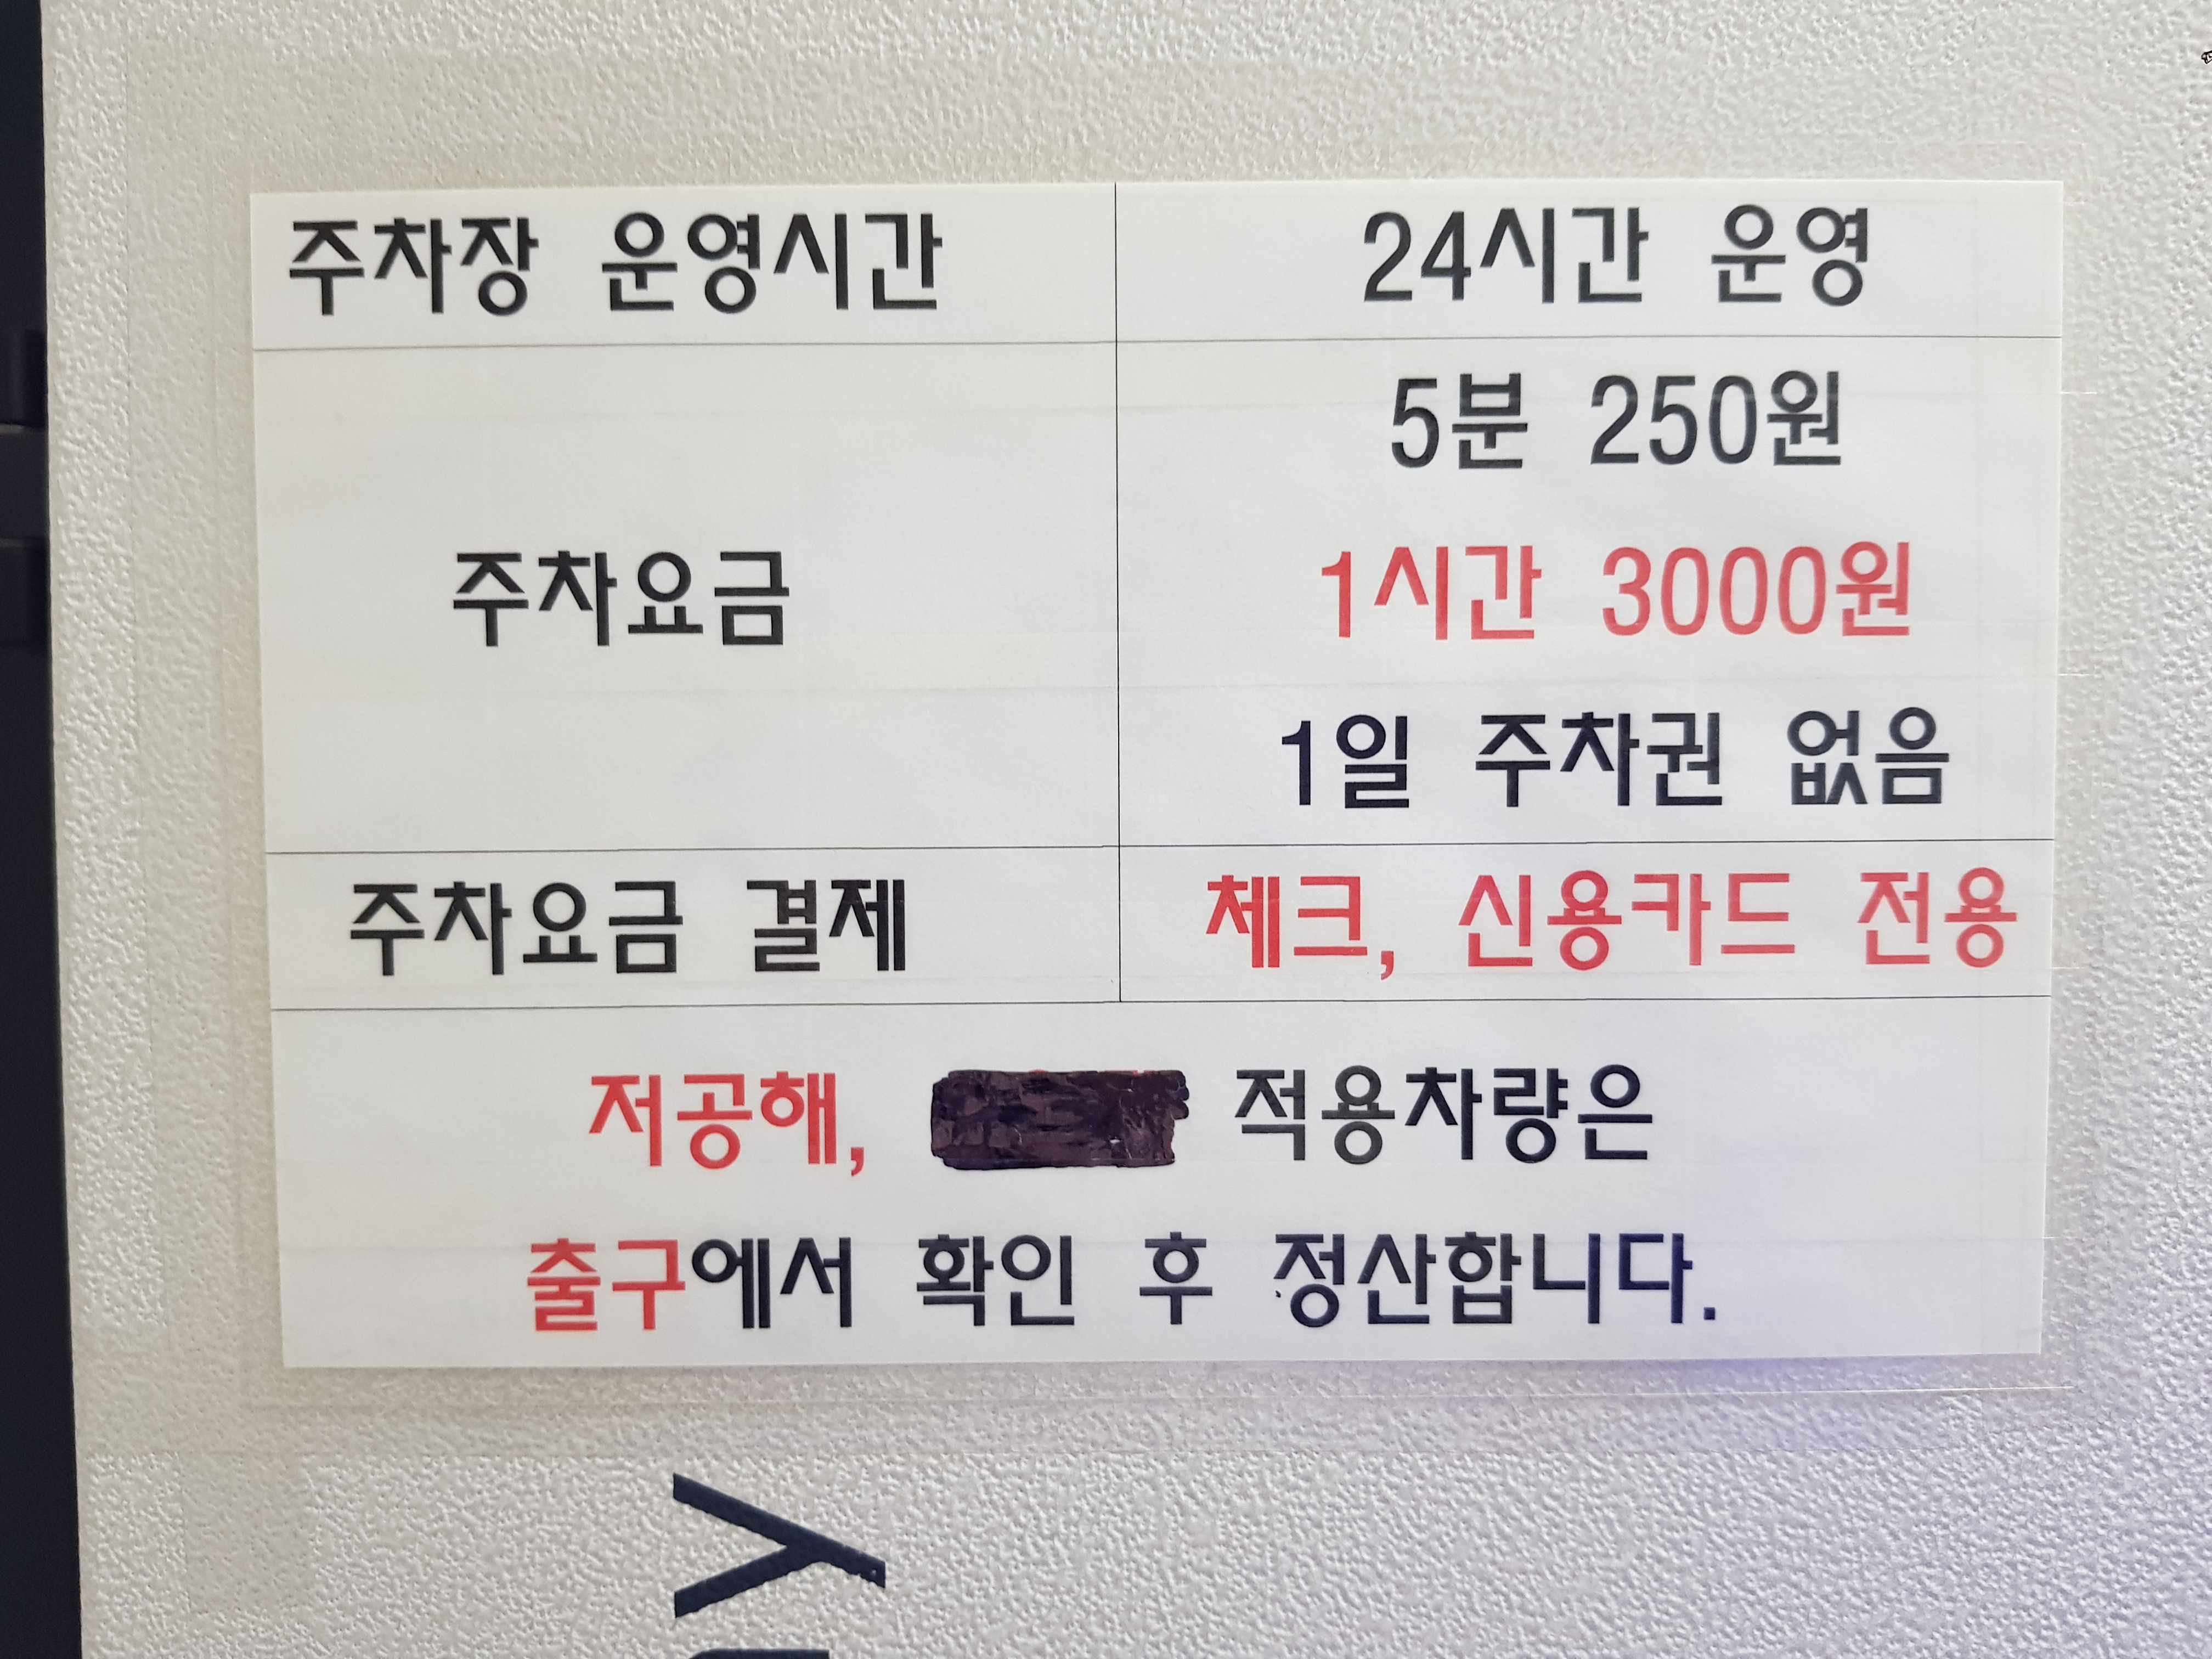 주차장 운영시간 24시간 운영
5분 250원
주차요금 1시간 3000원
1일 주차권 없음
주차요금 결제 체크, 신용카드 전용
저공해, 적용차량은
출구에서 확인 후 정산합니다.